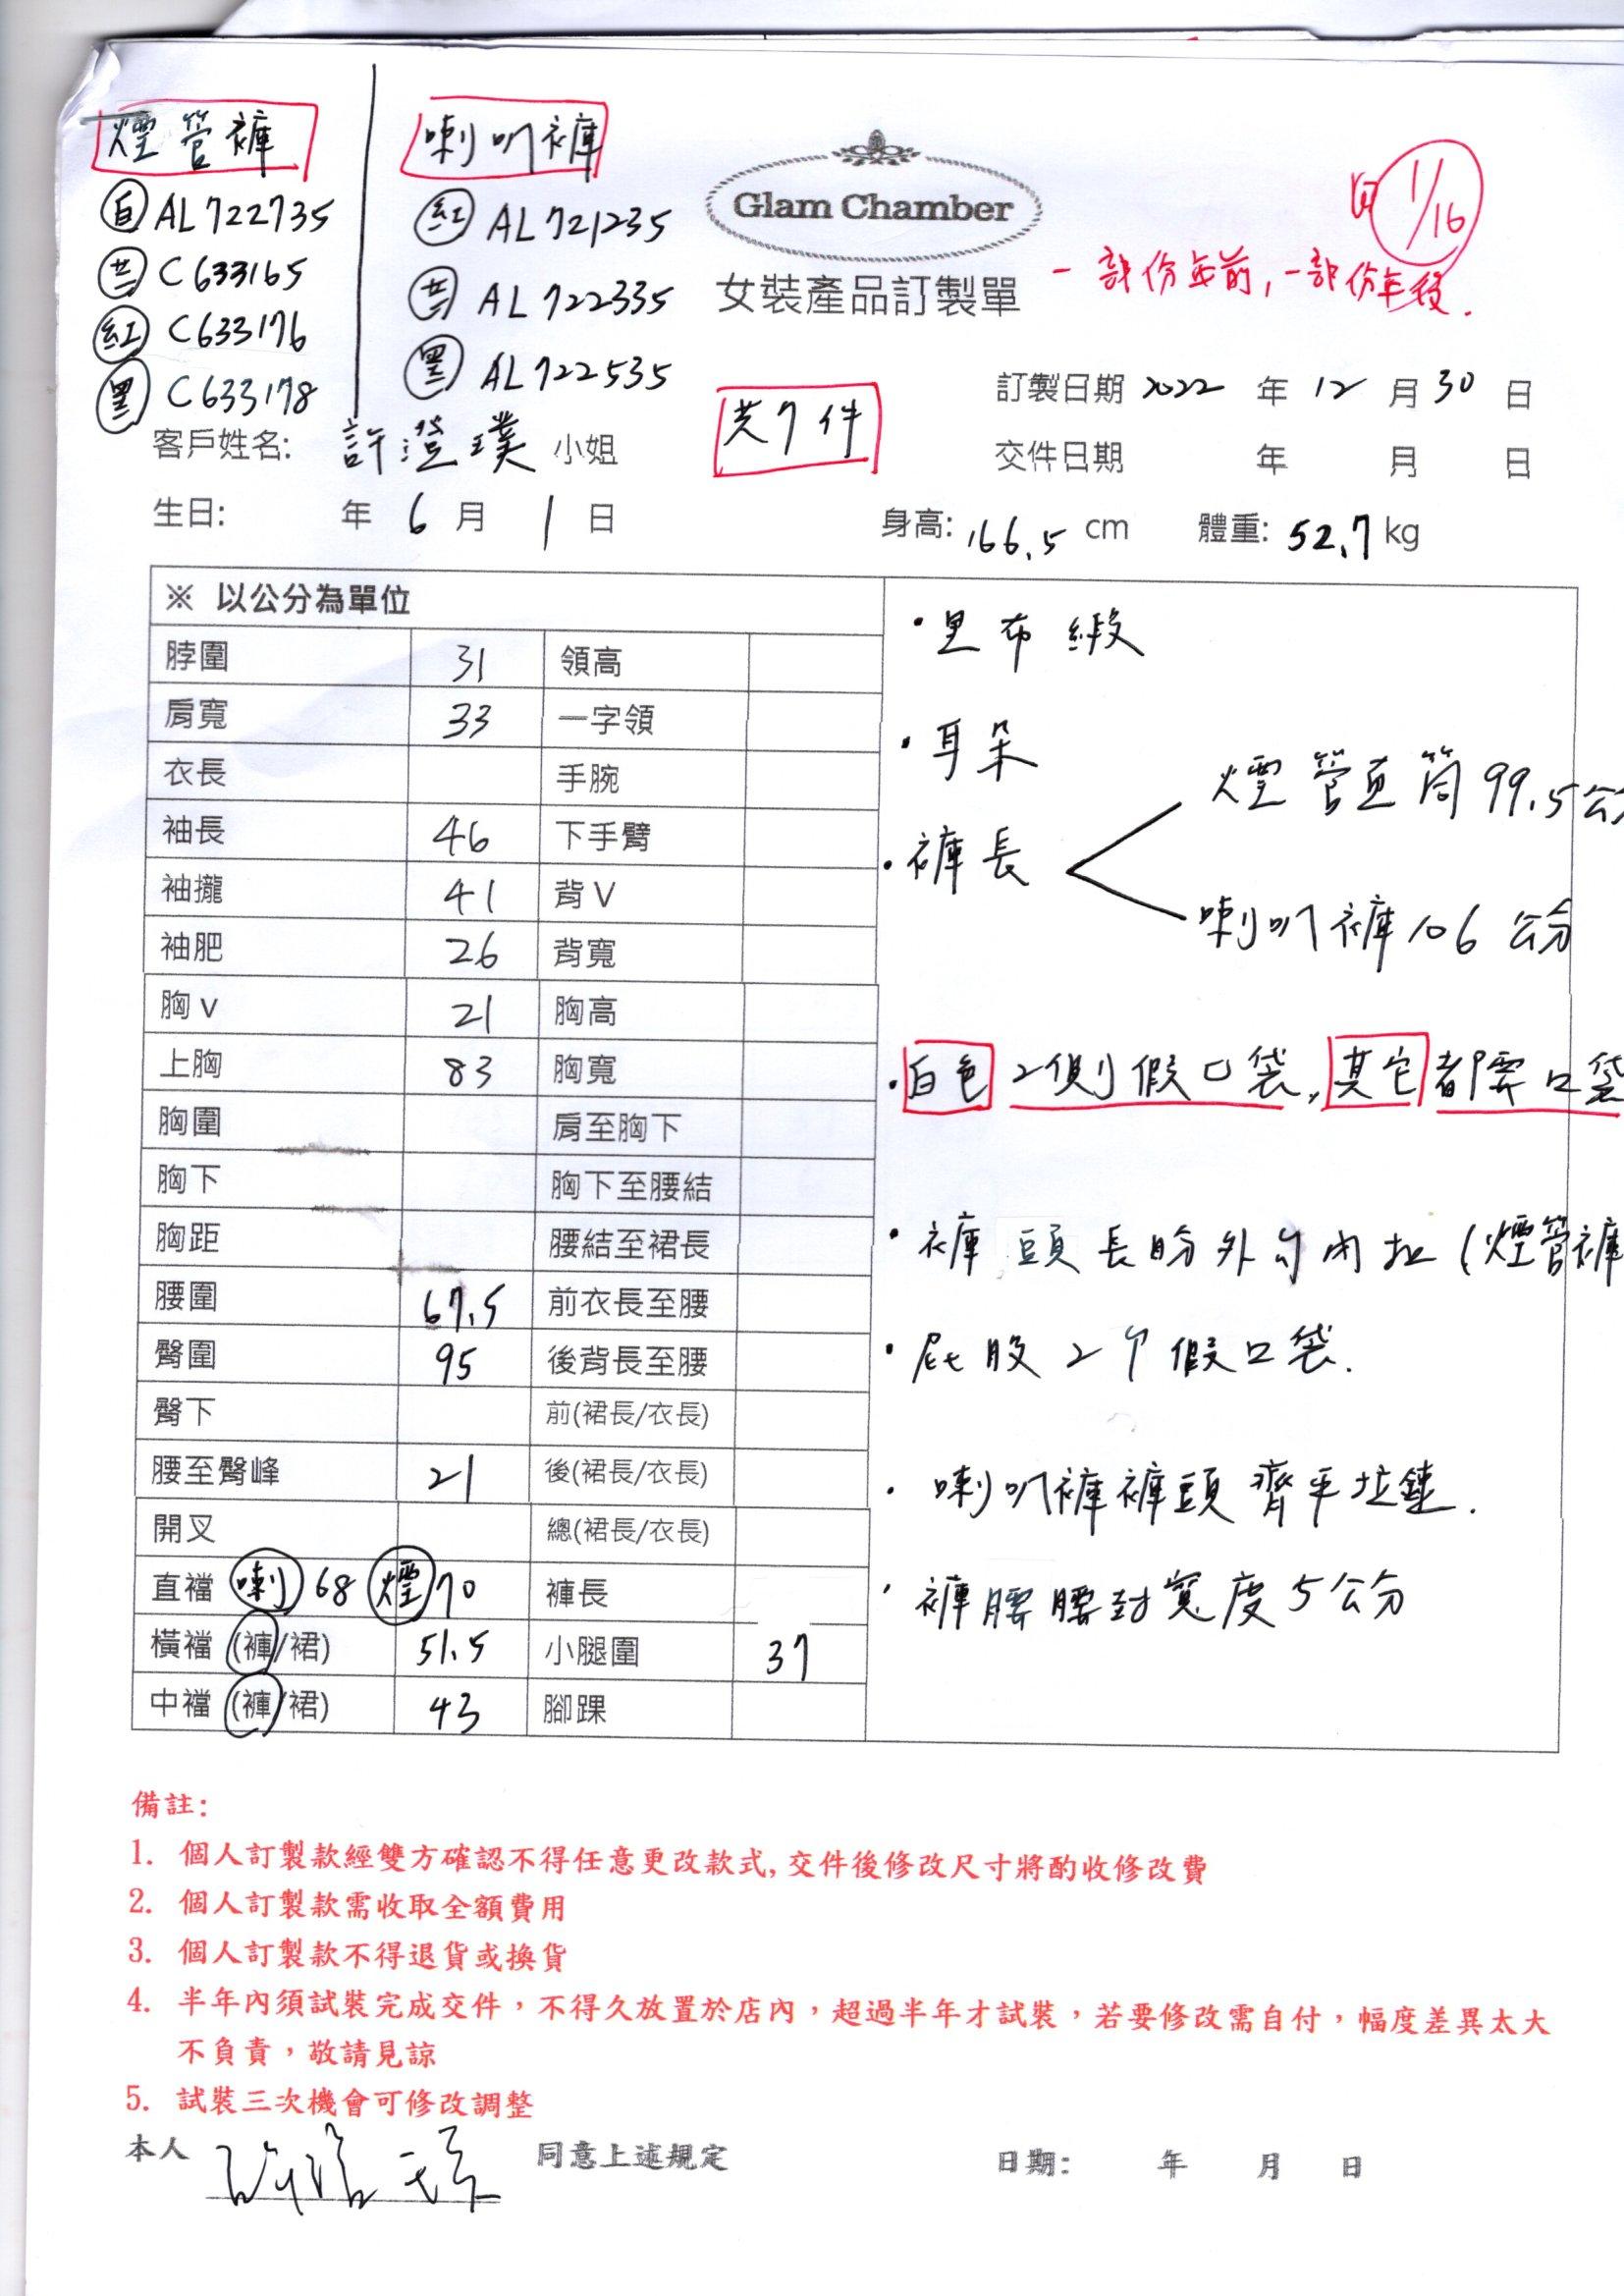 煙管褲
白 AL722735
C633165
紅 C633176
黑 C633178
喇叭褲
紅 AL721235
AL722335
黑 AL722535
Glam Chamber
女裝產品訂製單
1/16
一部份年前,一部份年後.
共7件
訂製日期 2022 年 12 月 30 日
交件日期 年 月 日
客戶姓名: 許澄璞 小姐
生日: 年 6 月 1 日
身高: 166.5 cm 體重: 52.7 kg
※ 以公分為單位
脖圍 31 領高
肩寬 33 一字領
衣長 手腕
袖長 46 下手臂
袖攏 41 背V
袖肥 26 背寬
胸v 21 胸高
上胸 83 胸寬
胸圍 肩至胸下
胸下 胸下至腰結
胸距 腰結至裙長
腰圍 67.5 前衣長至腰
臀圍 95 後背長至腰
臀下 前(裙長/衣長)
腰至臀峰 21 後(裙長/衣長)
開叉 總(裙長/衣長)
直襠 喇 68 煙 70 褲長
橫襠 (褲/裙) 51.5 小腿圍 37
中襠 (褲/裙) 43 腳踝
·里布緞
·耳朵
·褲長
煙管直筒99.5公
喇叭褲106公分
·白色2側假口袋,其它都要口袋
·褲頭長 外勾內扣(煙管褲
·屁股2个假口袋.
·喇叭褲褲頭齊平拉鏈.
·褲腰腰封寬度5公分
備註:
1. 個人訂製款經雙方確認不得任意更改款式,交件後修改尺寸將酌收修改費
2. 個人訂製款需收取全額費用
3. 個人訂製款不得退貨或換貨
4. 半年內須試裝完成交件,不得久放置於店內,超過半年才試裝,若要修改需自付,幅度差異太大
不負責,敬請見諒
5. 試裝三次機會可修改調整
本人 同意上述規定 日期: 年 月 日